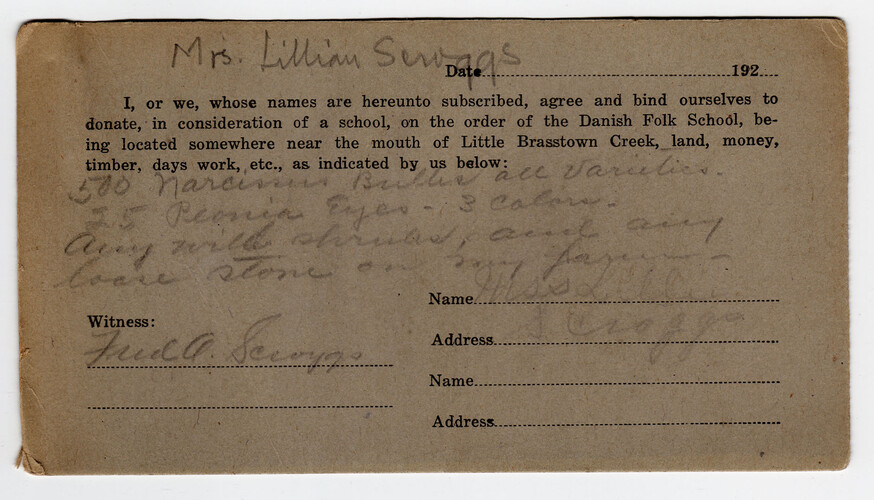 Mrs. Lillian Scroggs
Date 192
I, or we, whose names are hereunto subscribed, agree and bind ourselves to
donate, in consideration of a school, on the order of the Danish Folk School, be-
ing located somewhere near the mouth of Little Brasstown Creek, land, money,
timber, days work, etc., as indicated by us below:
500 Narcissus Bulbs all varieties.
25 Peonia Eyes - 3 colors.
Any wild shrubs, and any
loose stone on my farm -
Name
Scroggs
Witness:
Address
Fred O. Scroggs
Name
Address